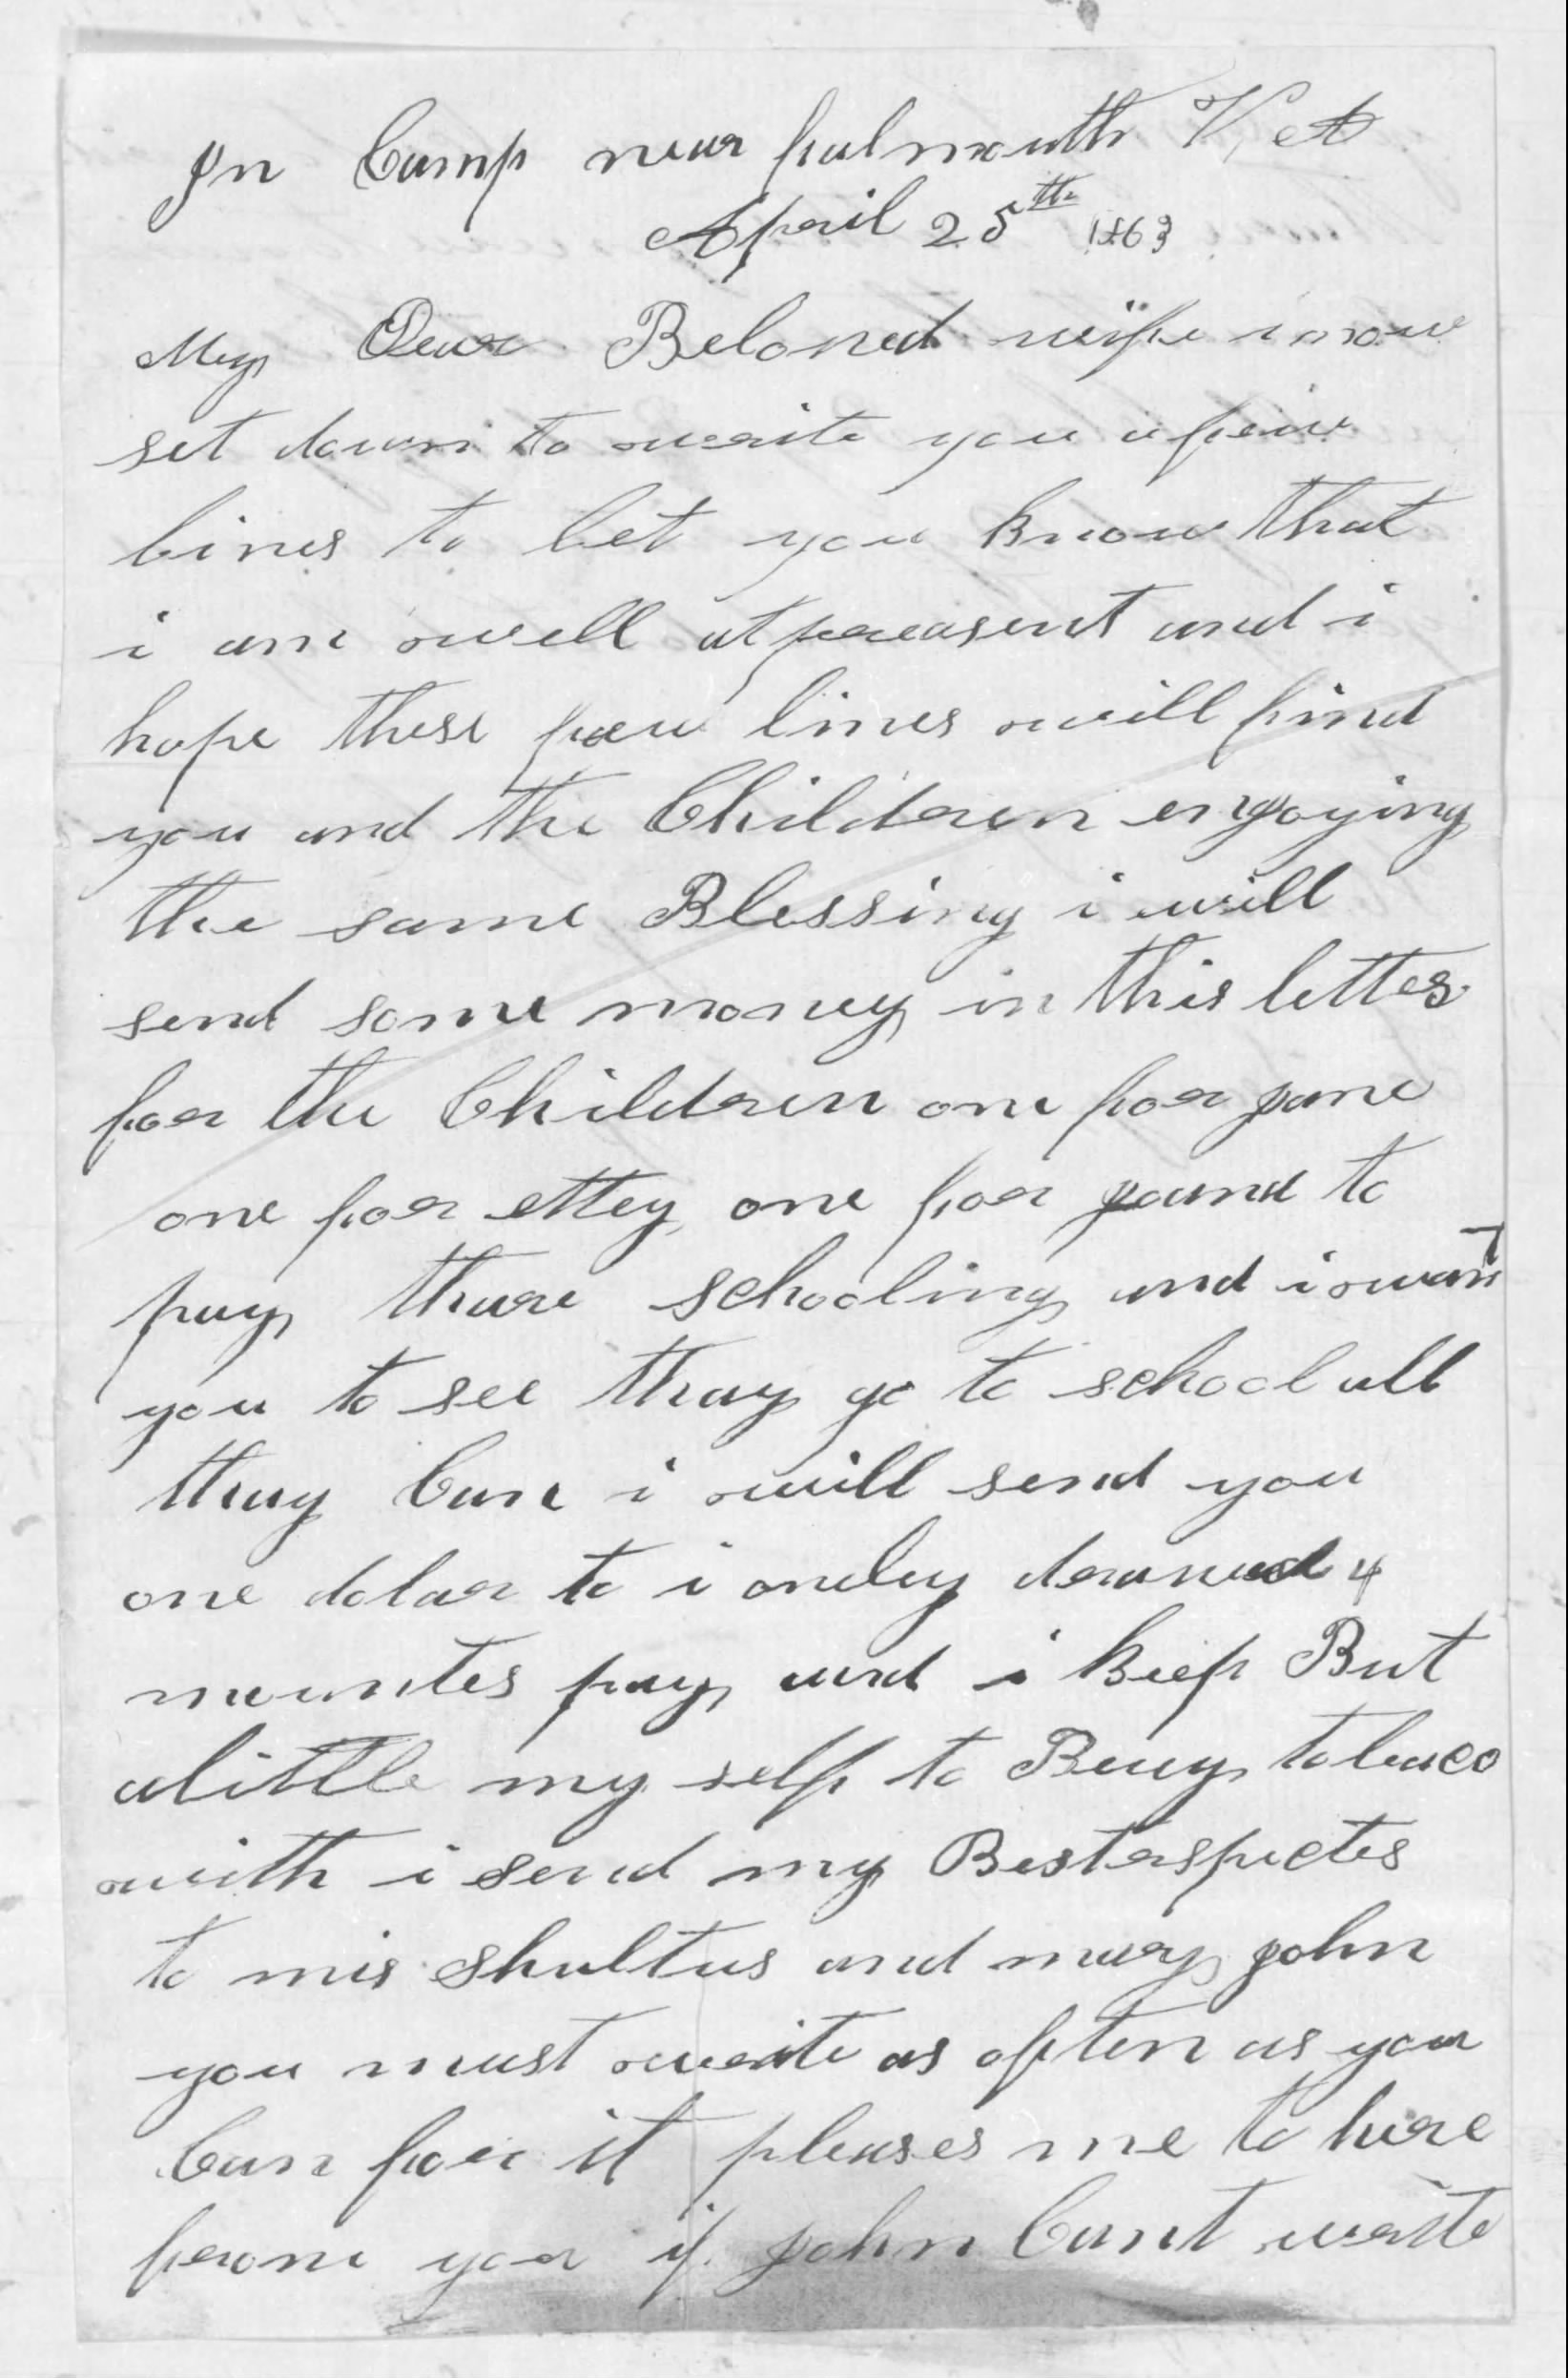 In Camp near falmouth VA
April 25th 1863
My Dear Beloved wife i now
set down to write you a few
lines to let you know that
i am well at preasent and i
hope these few lines will find
you and the Children engoying
the same Blessing i will
send some money in this letter
for the Children one for jane
one for ettey one for
pay thare schooling and i want
you to see thay go to school all
thay Can i will send you
one dolar to i onley drawed 4
mountes pay and i keep But
alittle my self to Beuy tobaco
with i send my Best respectes
to mis Shultus and mary john
you must write as often as you
Can for it pleases me to here
frome you if john Cant write